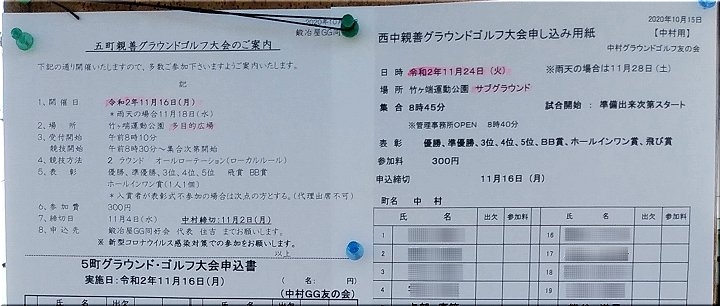 鍛冶屋GG同
五町親善グラウンドゴルフ大会のご案内
下記の通り開催いたしますので、多数ご参加下さいますようご案内いたします。
記
1、開催日 令和2年11月16日(月)
*雨天の場合11月18日(水)
2、場 所 竹ヶ端運動公園 多目的広場
3、受付開始 午前8時10分
競技開始 午前8時30分～集合次第開始
4、競技方法 2 ラウンド オールローテーション(ローカルルール)
5、表 彰 優勝、準優勝、3位、4位、5位 飛賞 BB賞
ホールインワン賞(1人1個)
*入賞者が表彰式不参加の場合は次点の方とする。(代理出席不可)
6、参加費 300円
7、締切日 11月4日(水) 中村締切:11月2日(月)
8、申込先 鍛冶屋GG同好会 代表 住吉 までお願いします。
※ 新型コロナウイルス感染対策での参加をお願いします。
以上
5町グラウンド・ゴルフ大会申込書
実施日:令和2年11月16日(月) ( 名: 円)
(中村GG友の会)
2020年10月15日
西中親善グラウンドゴルフ大会申し込み用紙 【中村用】
中村グラウンドゴルフ友の会
日 時 令和2年11月24日(火) ※雨天の場合は11月28日(土)
場 所 竹ヶ端運動公園 サブグラウンド
集 合 8時45分 試合開始 : 準備出来次第スタート
※管理事務所OPEN 8時40分
表 彰 優勝、準優勝、3位、4位、5位、BB賞、ホールインワン賞、飛び賞
参加料 300円
申込締切 11月16日(月)
町名 中 村
氏 名 出欠 参加料 氏 名 出欠 参加料
1 16
2 17
3 18
4 19